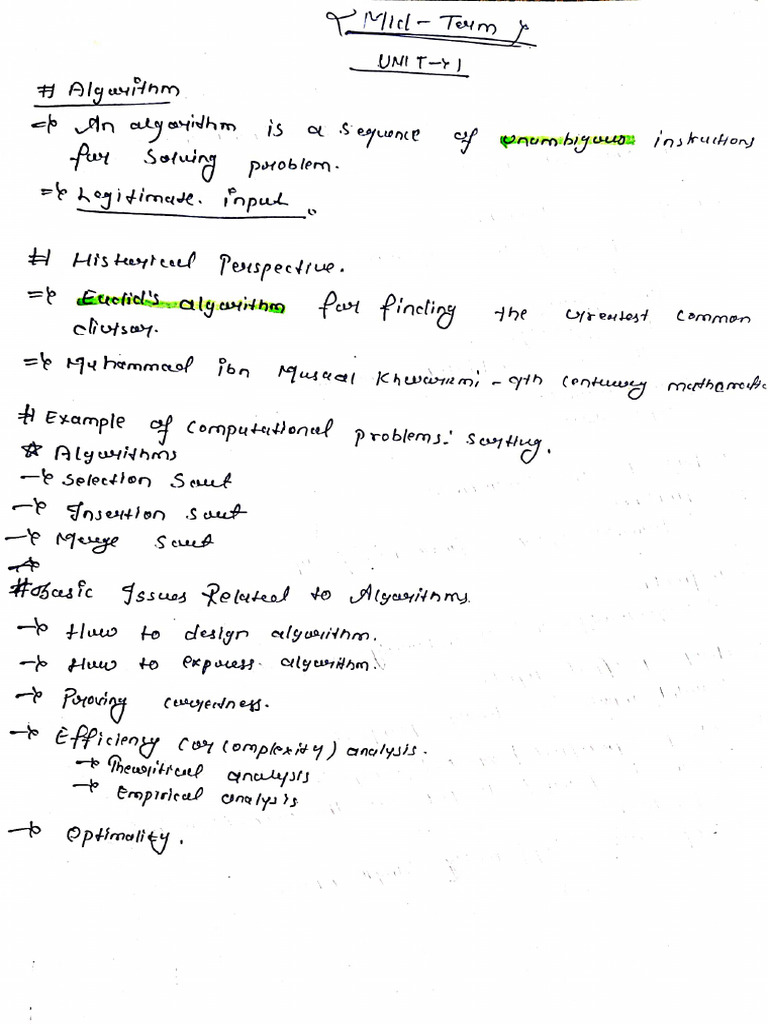 Mid-Term
UNIT-1
# Algorithm
=> An algorithm is a sequence of unambiguous instructions
for solving problem.
=> Legitimate input.
# Historical Perspective.
=> Euclid's algorithm for finding the greatest common
divisor.
=> Muhammad ibn Musaal Khwarizmi - 9th century mathematic
# Example of computational problems: sorting.
☆ Algorithms
→ Selection Sort
→ Insertion sort
→ Merge sort
# Basic Issues Related to Algorithms.
→ How to design algorithm.
→ How to express algorithm.
→ Proving correctness.
→ Efficiency (or complexity) analysis.
→ Theoritical analysis
→ Empirical analysis
→ Optimality.